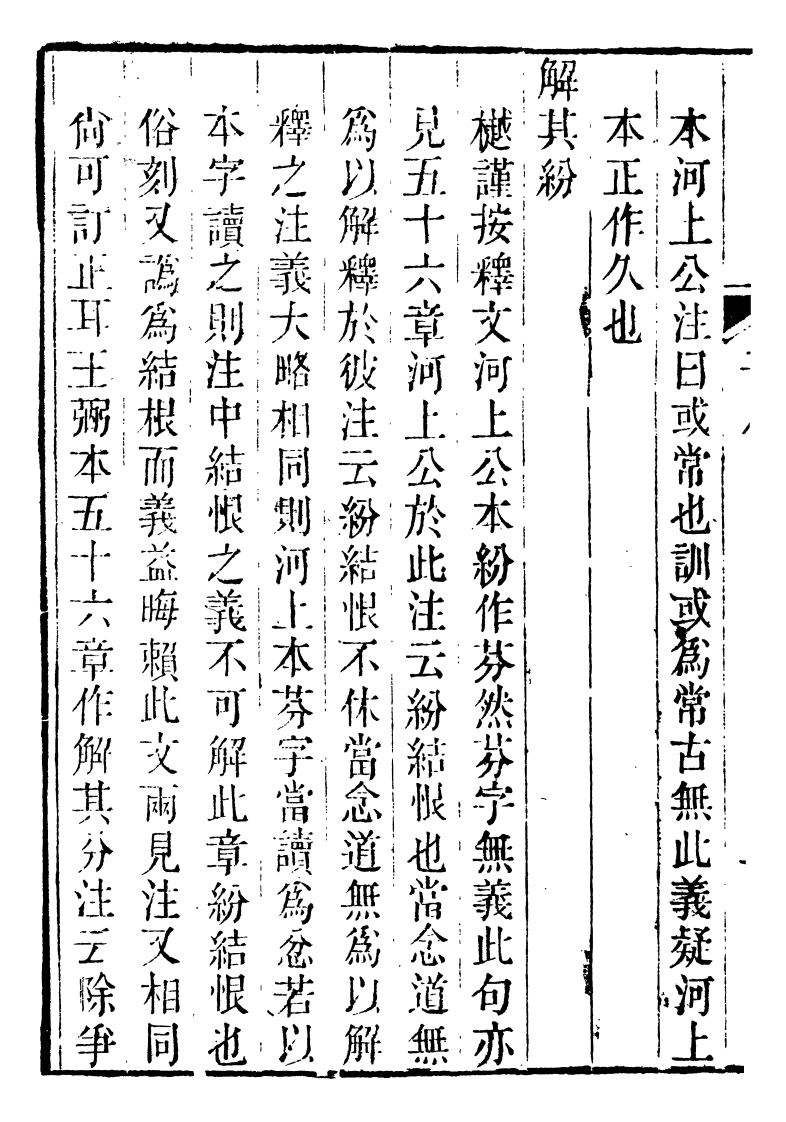 本河上公注曰或常也訓或爲常古無此義疑河上
本正作久也
解其紛
樾謹按釋文河上公本紛作芬然芬字無義此句亦
見五十六章河上公於此注云紛結恨也當念道無
爲以解釋於彼注云紛結恨不休當念道無爲以解
釋之注義大略相同則河上本芬字當讀爲忿若以
本字讀之則注中結恨之義不可解此章紛結恨也
俗刻又譌爲結根而義益晦賴此文兩見注又相同
尙可訂正耳王弼本五十六章作解其分注云除爭